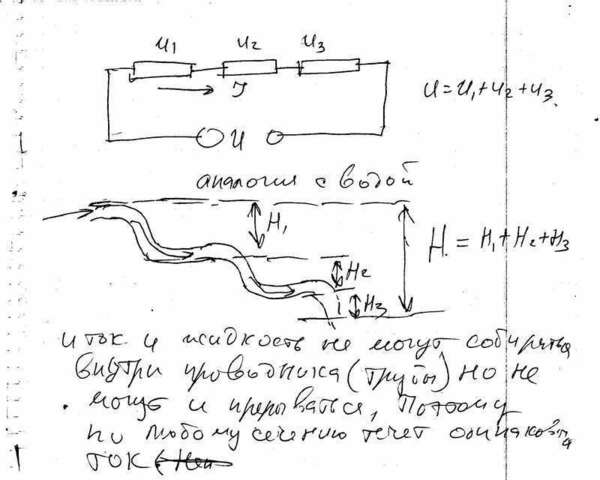 U1 U2 U3
J
U = U1 + U2 + U3.
U
аналогия с водой
H1
H = H1 + H2 + H3
H2
H3
и ток и жидкость не могут собираться
внутри проводника (трубы) но не
могут и прерываться, поэтому
по любому сечению течет одинаков
ток